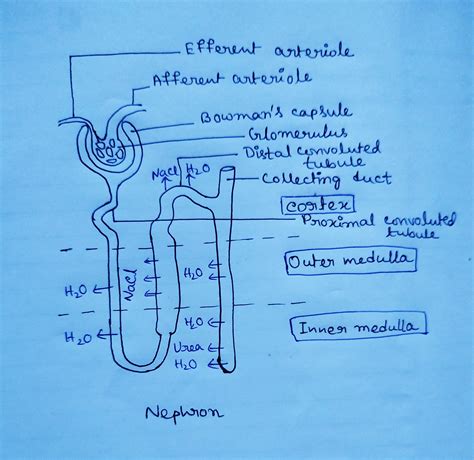 Efferent arteriole
Afferent arteriole
Bowman's capsule
Glomerulus
Distal convoluted
tubule
NaCl H₂O
Collecting duct
Cortex
Proximal convoluted
tubule
Outer medulla
H₂O
NaCl
H₂O
Inner medulla
H₂O
H₂O
Urea
H₂O
Nephron